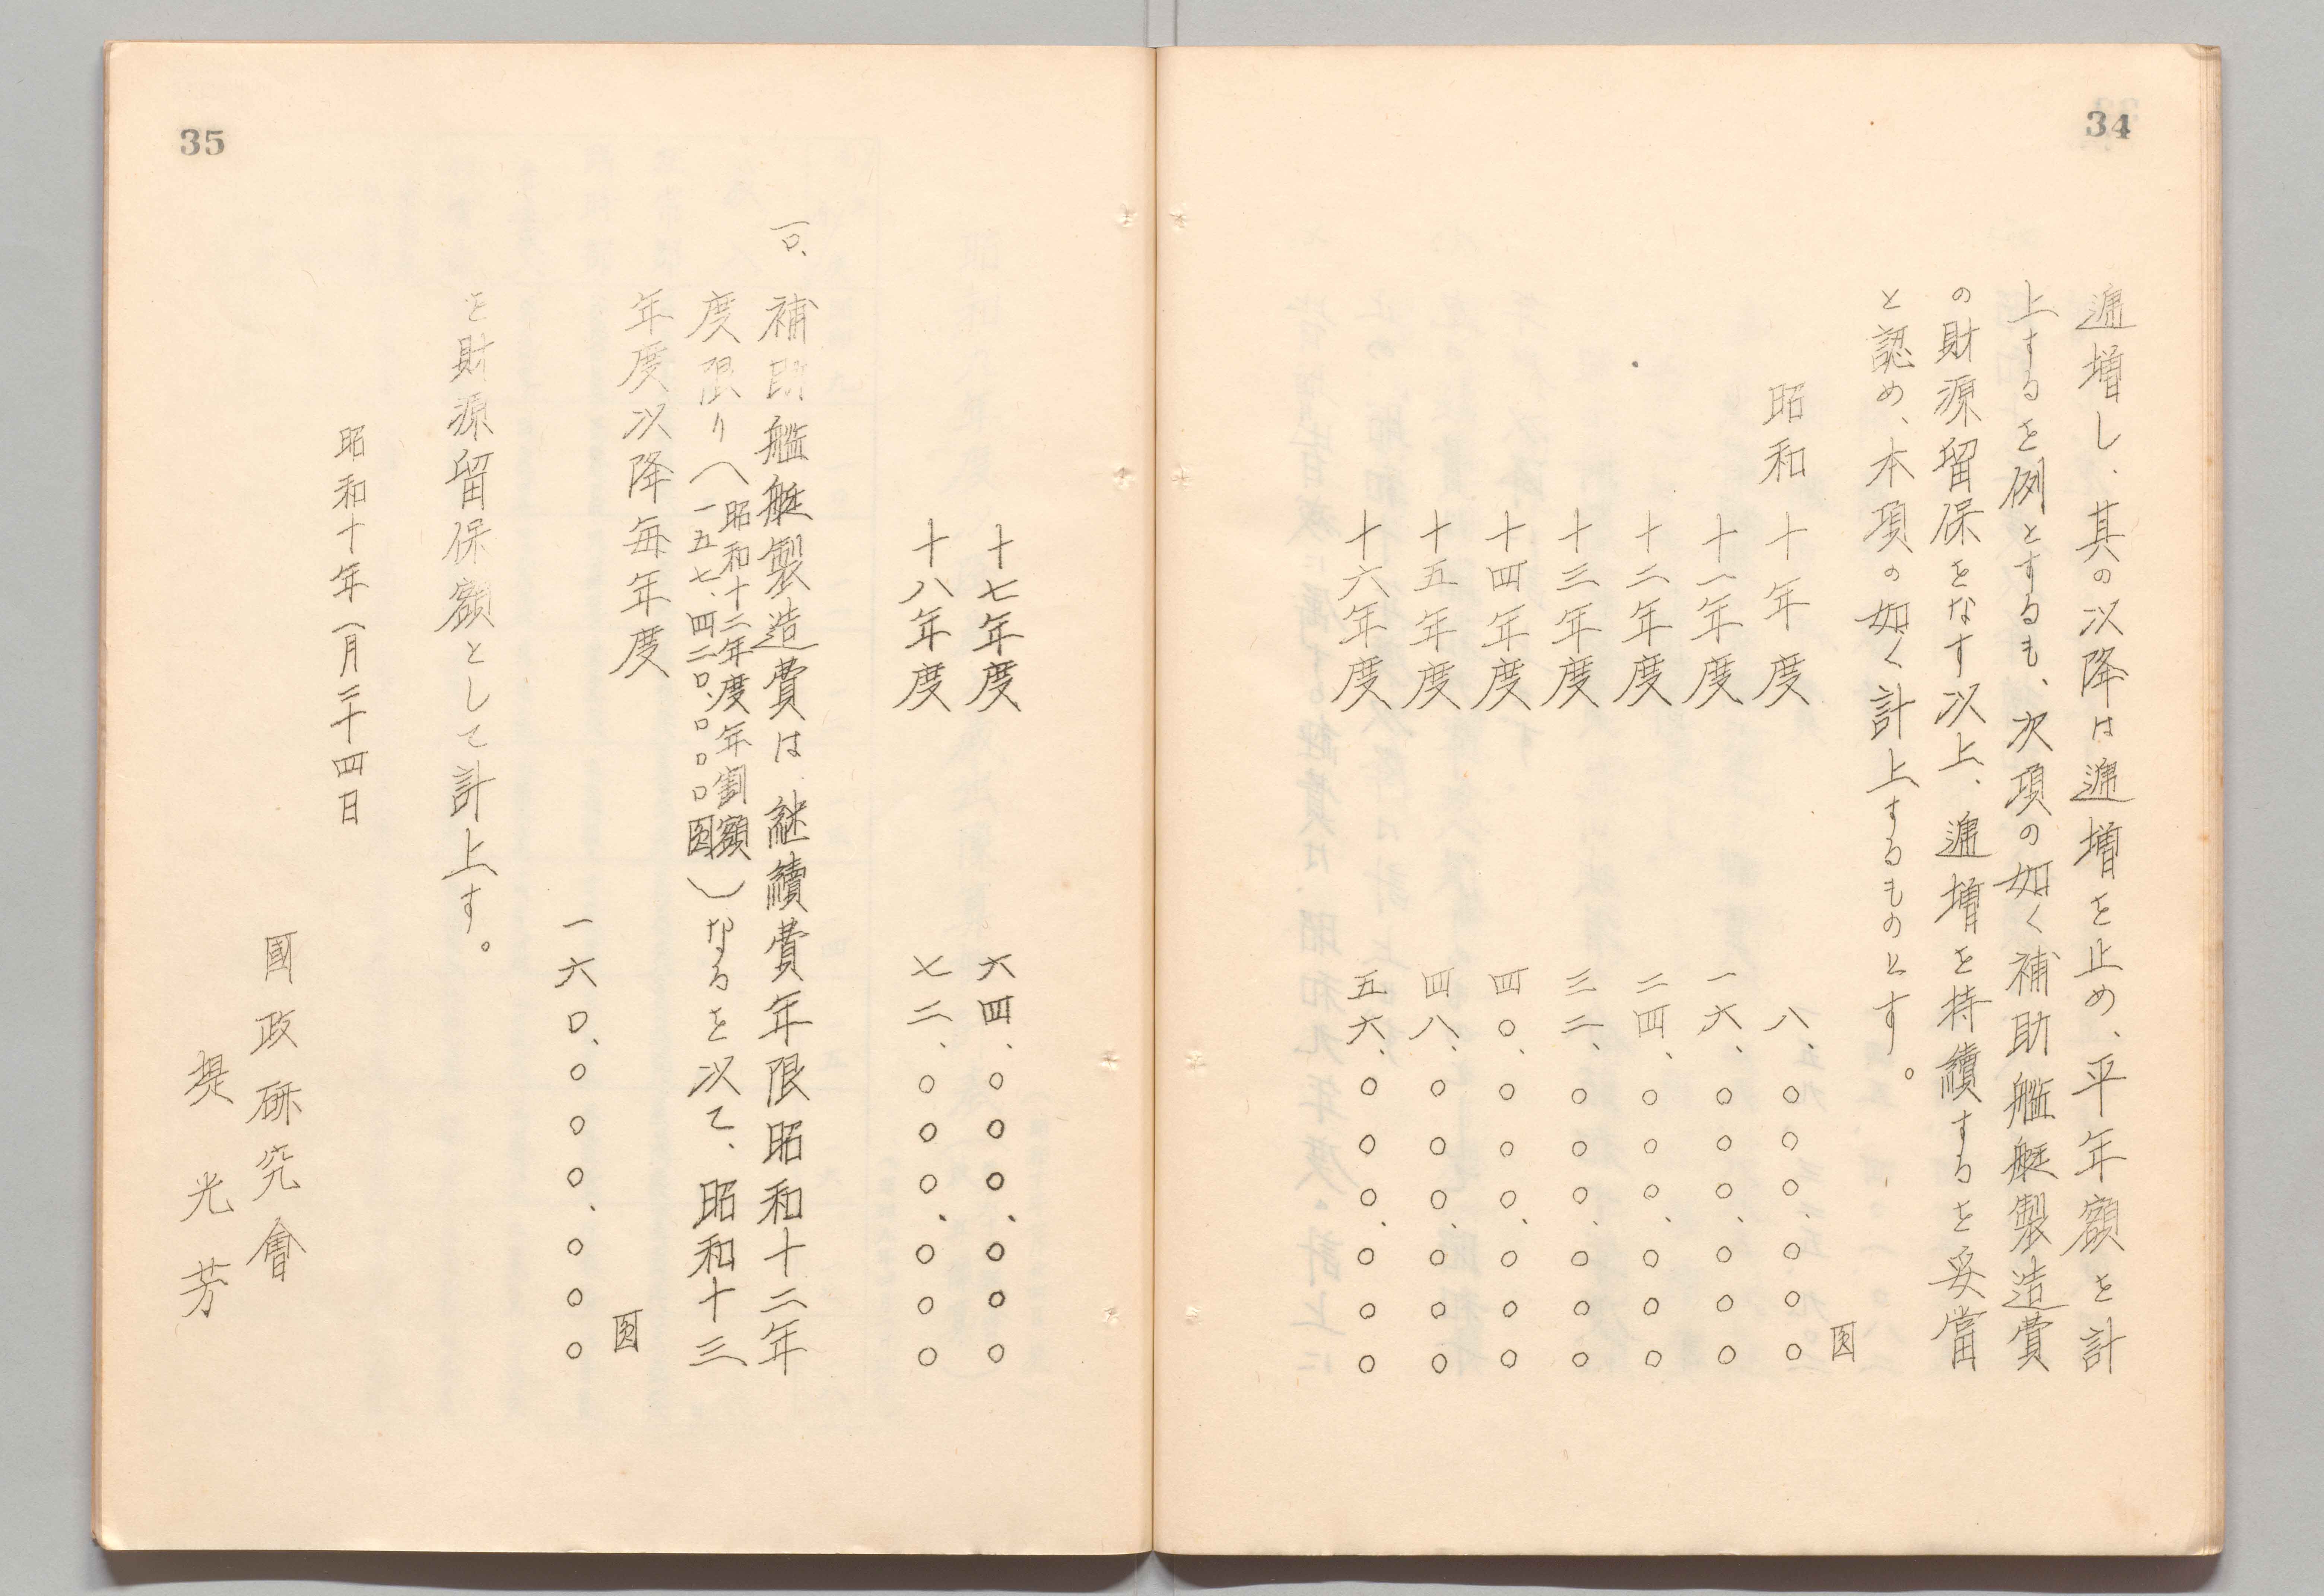 34
逓増し、其の以降は逓増を止め、平年額を計
上するを例とするも、次項の如く補助艦艇製造費
の財源留保をなす以上、逓増を持續するを妥當
と認め、本項の如く計上するものとす。
圓
昭和十年度 八、〇〇〇、〇〇〇
十一年度 一六、〇〇〇、〇〇〇
十二年度 二四、〇〇〇、〇〇〇
十三年度 三二、〇〇〇、〇〇〇
十四年度 四〇、〇〇〇、〇〇〇
十五年度 四八、〇〇〇、〇〇〇
十六年度 五六、〇〇〇、〇〇〇
35
十七年度 六四、〇〇〇、〇〇〇
十八年度 七二、〇〇〇、〇〇〇
一〇、補助艦艇製造費は、継續費年限昭和十二年
度限り(昭和十二年度年割額一五七、四二〇、〇〇〇圓)なるを以て、昭和十三
年度以降毎年度
圓
一六〇、〇〇〇、〇〇〇
を財源留保額として計上す。
昭和十年一月二十四日
國政研究會
堤光芳